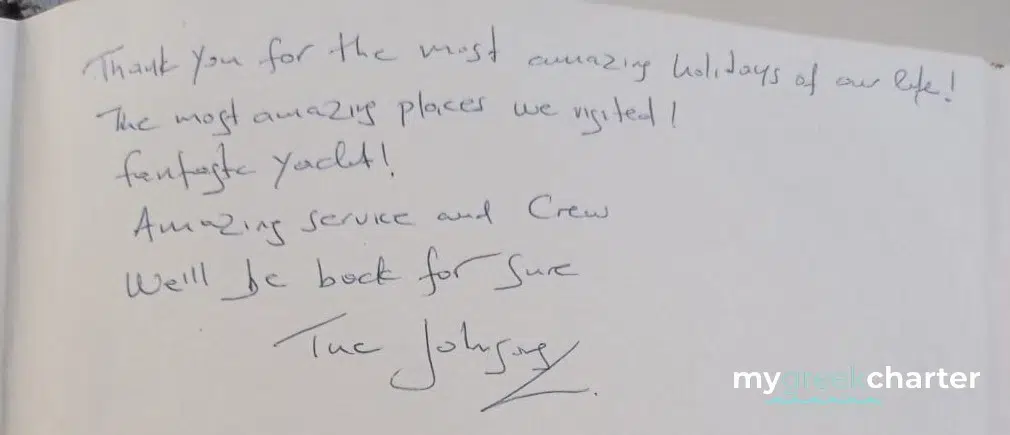 Thank you for the most amazing holidays of our life!
The most amazing places we visited!
fantastic yacht!
Amazing service and Crew
We'll be back for sure
The Johnsons
mygreekcharter